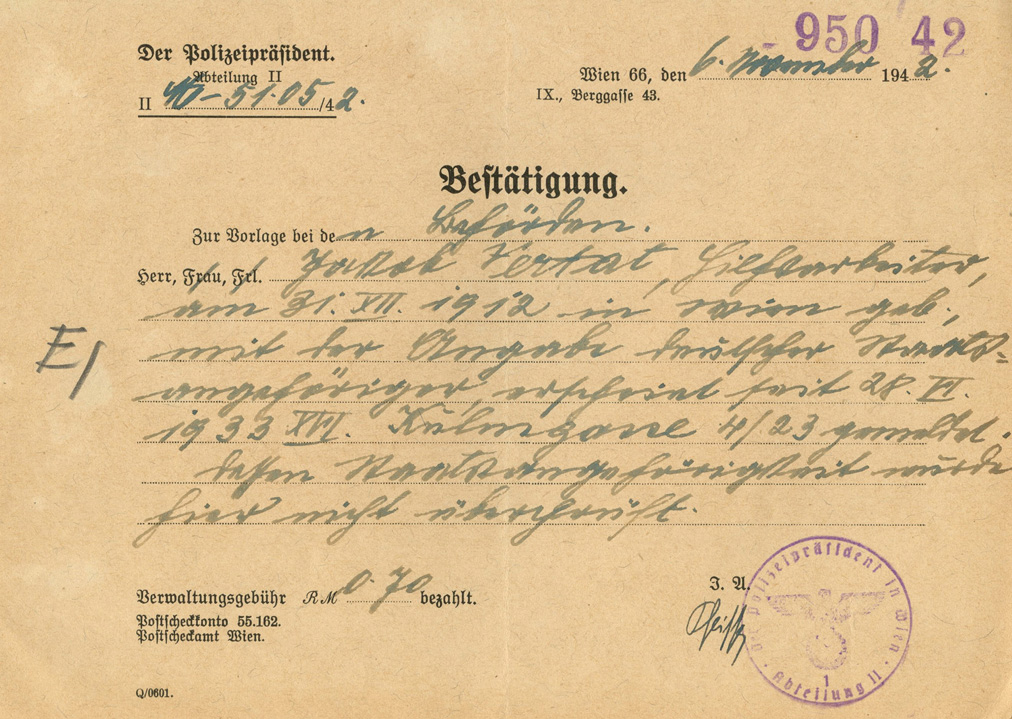 950 42
Der Polizeipräsident.
Abteilung II
II 40-51.05/42.
Wien 66, den 6. November 1942.
IX., Berggasse 43.
Bestätigung.
Zur Vorlage bei den Behörden.
Herr, Frau, Frl. Jakob Vertat, Hilfsarbeiter,
am 31. XII. 1912 in Wien geb.,
mit der Angabe deutscher Staats-
angehöriger, erscheint seit 28. VI.
1933 XVI. Kulmgasse 4/23 gemeldet.
dessen Staatsangehörigkeit wurde
hier nicht überprüft.
E/
Verwaltungsgebühr RM 0.70 bezahlt.
Postscheckkonto 55.162.
Postscheckamt Wien.
I. A.
Der Polizeipräsident in Wien
1
Abteilung II
Q/0601.